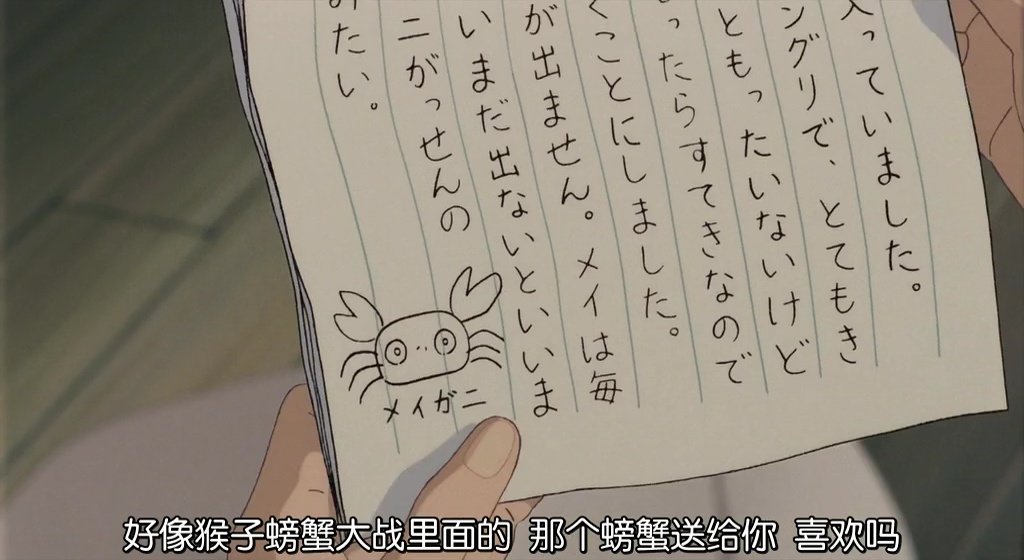 入っていました。
ングリで、とてもき
ともったいないけど
ったらすてきなので
くことにしました。
が出ません。メイは毎
いまだ出ないといいま
ニがっせんの
みたい。
メイガニ
好像猴子螃蟹大战里面的 那个螃蟹送给你 喜欢吗